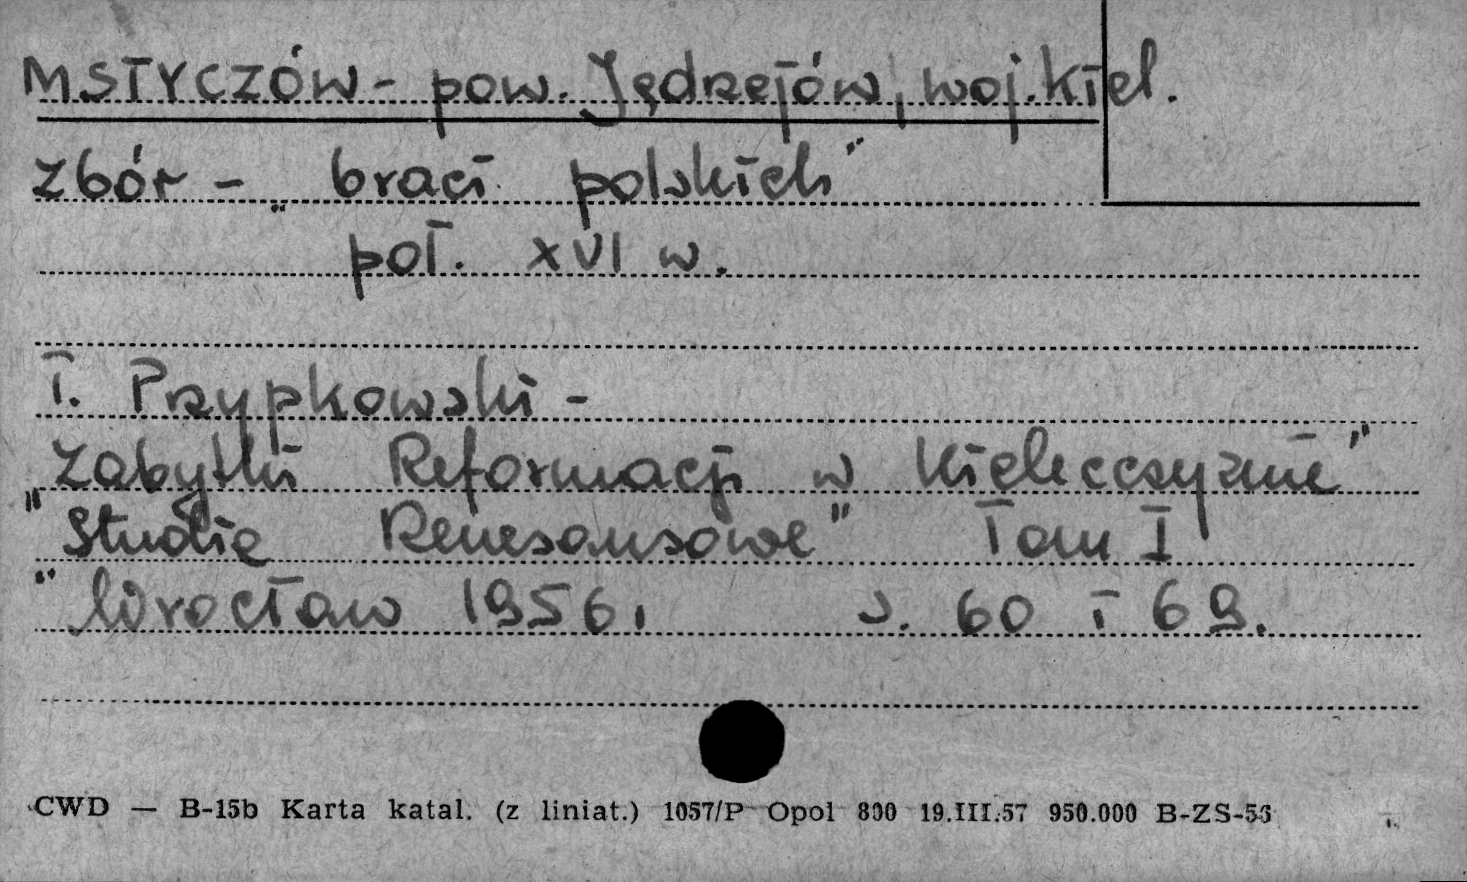 MSTYCZÓW - pow. Jędrzejów, woj. kiel.
zbór - „braci polskich"
poł. XVI w.
T. Przypkowski -
Zabytki Reformacji w Kielecczyźnie"
"Studia Renesansowe" Tom I
" Wrocław 1956. s. 60 i 69.
CWD — B-15b Karta katal. (z liniat.) 1057/P Opol 800 19.III.57 950.000 B-ZS-56